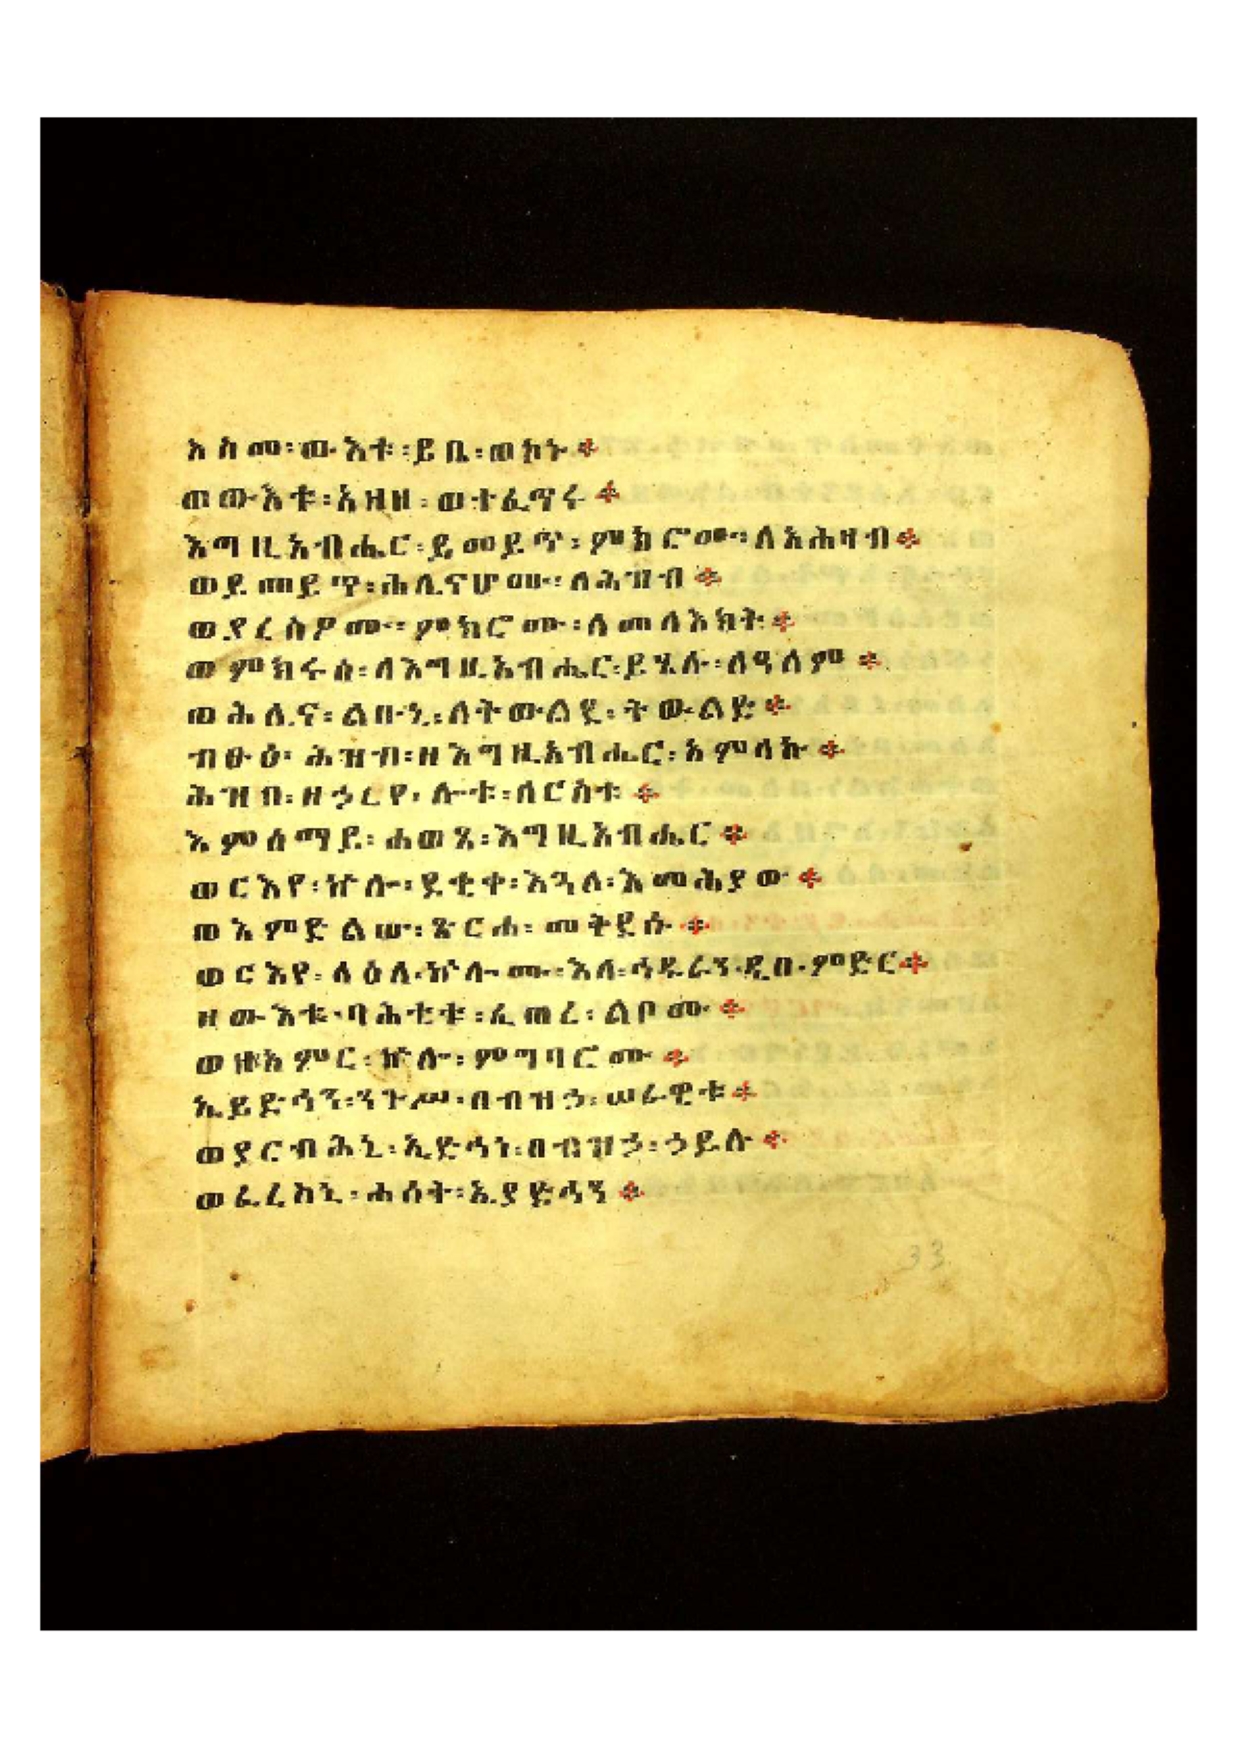 እስመ፡ውእቱ፡ይቤ፡ወኮኑ።
ወውእቱ፡አዘዘ፡ወተፈጥሩ።
እግዚአብሔር፡ይመይጥ፡ምክሮሙ፡ለአሕዛብ።
ወይመይጥ፡ሕሊናሆሙ፡ለሕዝብ።
ወያረስዖሙ፡ምክሮሙ፡ለመላእክት።
ወምክሩሰ፡ለእግዚአብሔር፡ይሄሉ፡ለዓለም።
ወሕሊና፡ልቡኒ፡ለትውልደ፡ትውልድ።
ብፁዕ፡ሕዝብ፡ዘእግዚአብሔር፡አምላኩ።
ሕዝብ፡ዘኃረየ፡ሎቱ፡ለርስቱ።
እምሰማይ፡ሐወጸ፡እግዚአብሔር።
ወርእየ፡ኵሎ፡ደቂቀ፡እጓለ፡እመሕያው።
ወእምድልው፡ጽርሐ፡መቅደሱ።
ወርእየ፡ላዕለ፡ኵሎሙ፡እለ፡ኅዱራን፡ዲበ፡ምድር።
ዘውእቱ፡ባሕቲቱ፡ፈጠረ፡ልቦሙ።
ወዘአምር፡ኵሎ፡ምግባሮሙ።
ኢይድኅን፡ንጉሥ፡በብዝኃ፡ሠራዊቱ።
ወያርብሕኒ፡ኢድኅነ፡በብዝኃ፡ኃይሉ።
ወፈረስኒ፡ሐሰት፡ኢያድኅን።
33